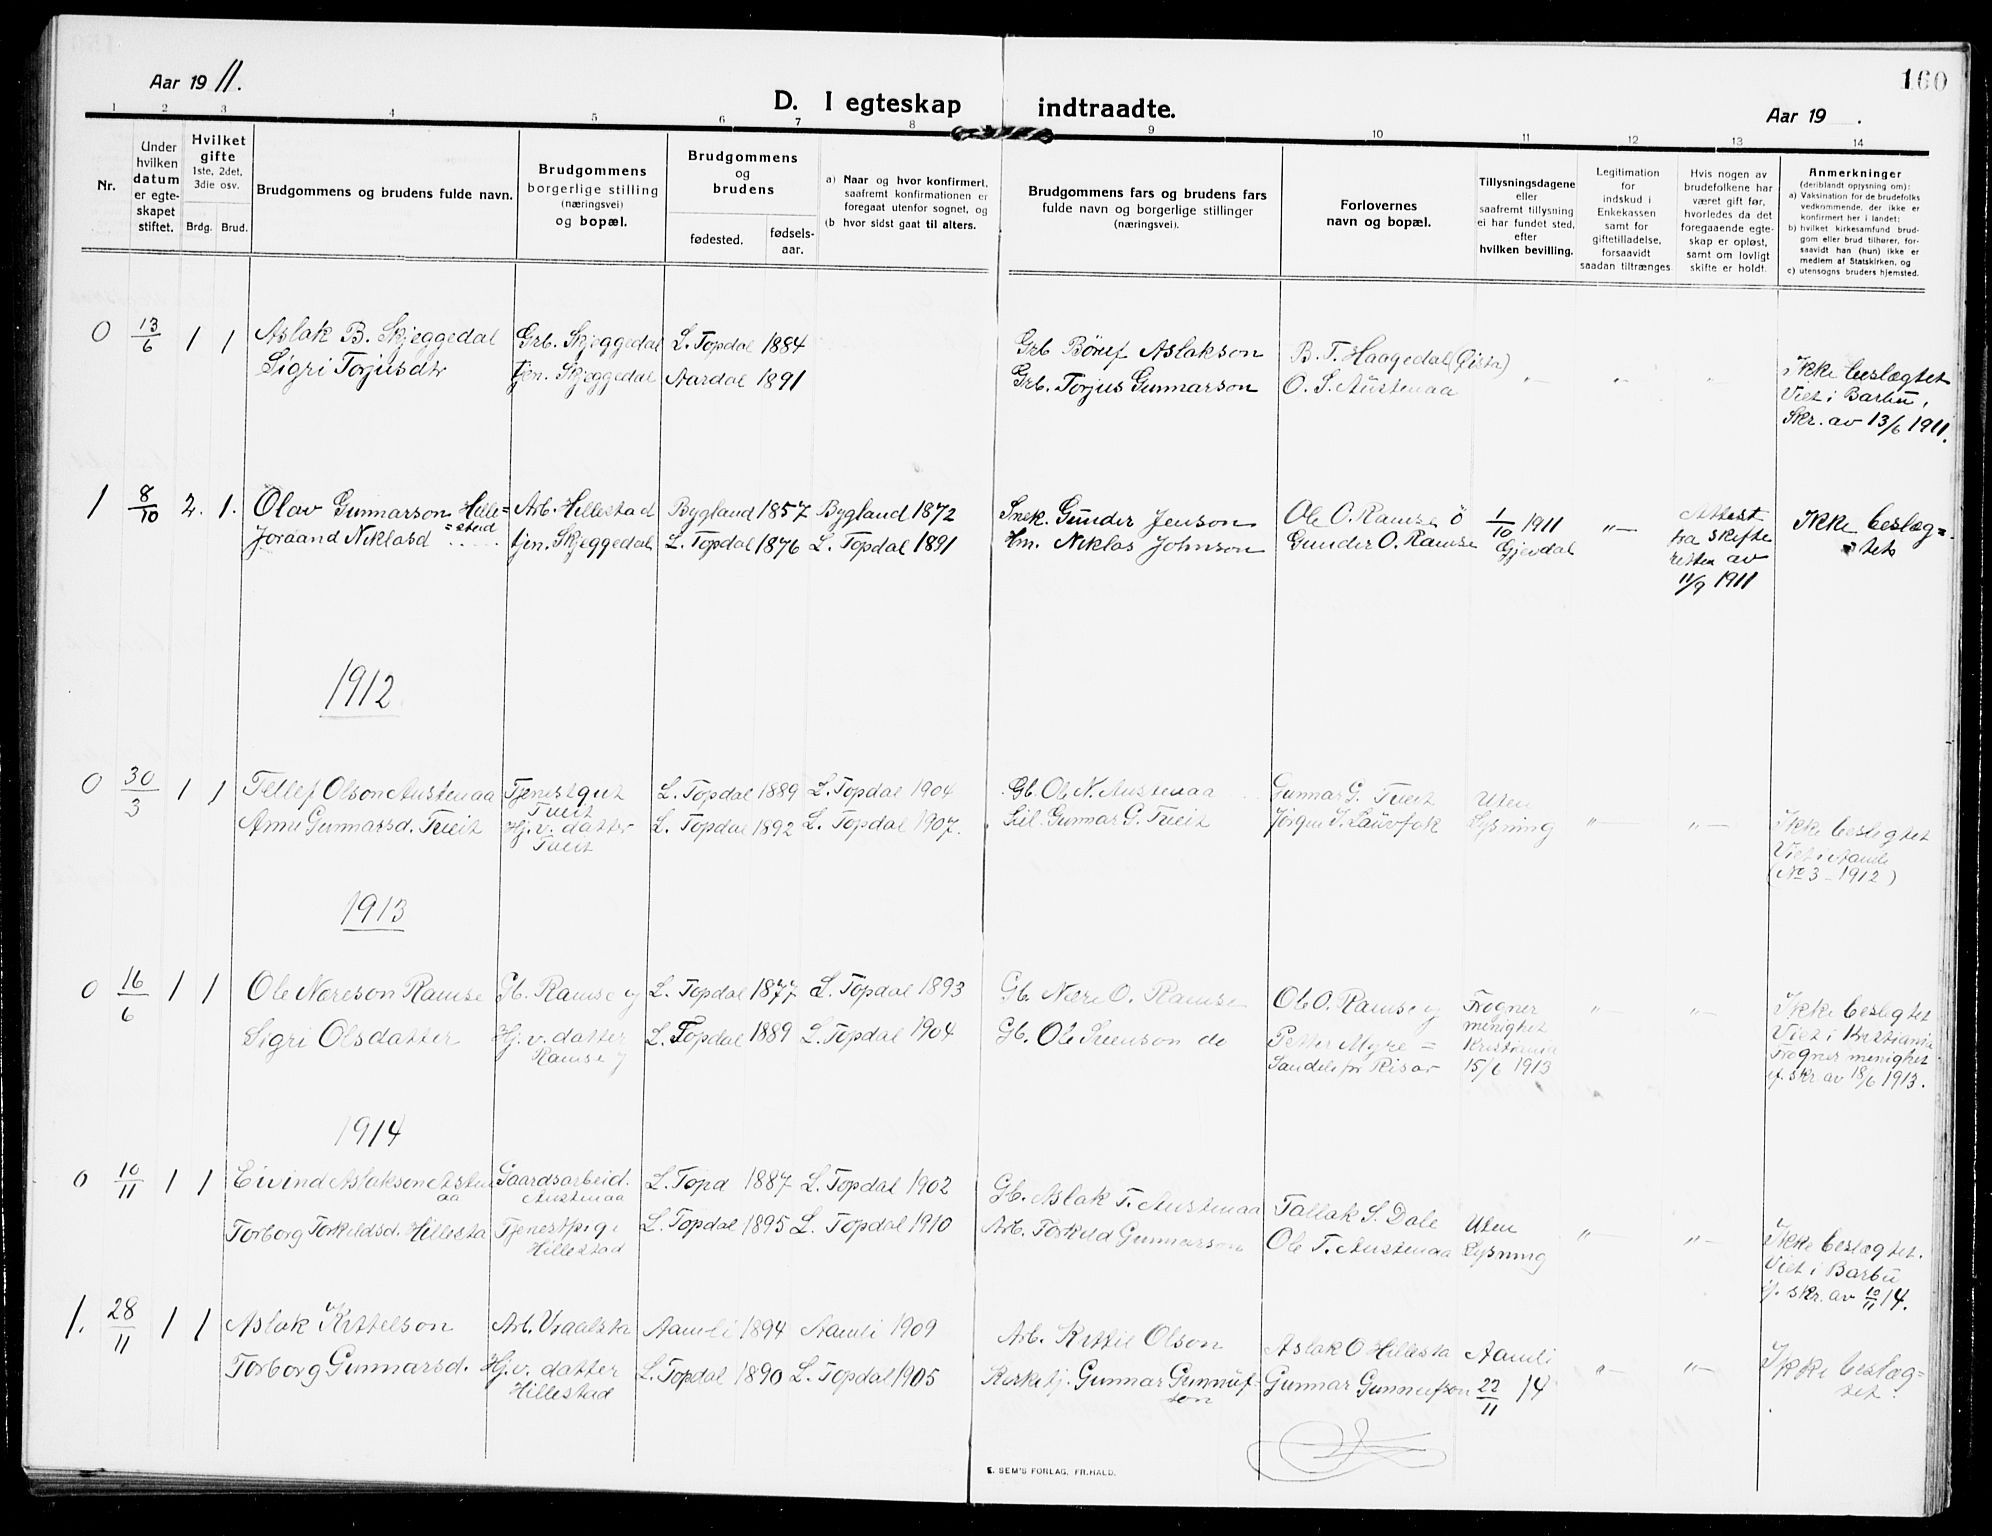 Aar 19 11.
160
D. I egteskap indtraadte.
Aar 19 .
1 2 3 4 5 6 7 8 9 10 11 12 13 14
Nr.
Under hvilken datum er egteskapet stiftet.
Hvilket gifte 1ste, 2det, 3die osv.
Brdg. Brud.
Brudgommens og brudens fulde navn.
Brudgommens borgerlige stilling (næringsvei) og bopæl.
Brudgommens og brudens
fødested. fødselsaar.
a) Naar og hvor konfirmert, saafremt konfirmationen er foregaat utenfor sognet, og
(b hvor sidst gaat til alters.
Brudgommens fars og brudens fars fulde navn og borgerlige stillinger (næringsvei).
Forlovernes navn og bopæl.
Tillysningsdagene eller saafremt tillysning ei har fundet sted, efter hvilken bevilling.
Legitimation for indskud i Enkekassen samt for giftetilladelse, forsaavidt saadan tiltrænges
Hvis nogen av brudefolkene har været gift før, hvorledes da det foregaaende egteskap er opløst, samt om lovligt skifte er holdt.
Anmerkninger
(deriblandt oplysning om):
a) Vaksination for de brudefolks vedkommende, der ikke er konfirmert her i landet;
b) hvilket kirkesamfund brudgom eller brud tilhører, forsaavidt han (hun) ikke er medlem af Statskirken, og
c) utensogns bruders hjemsted.
0 13/6 1 1 Aslak B. Skjeggedal Grb. Skjeggedal L. Topdal 1884 Grb Børuf Aslakson B. T. Haagedal (Gjsta)
Sigri Torjusdtr tjen. Skjeggedal Aardal 1891 Grb. Torjus Gunnarson O. S. Austenaa " " " Ikke beslægtet
Viet i Barbu,
Skr. av 13/6 1911.
1 8/10 2. 1. Olav Gunnarson Hille= Arb. Hillestad Bygland 1857 Bygland 1872 Snek. Gunder Jenson Ole O. Ramse ö 1/10 1911 " Attest Ikke beslæg=
=stad
Joraand Niklasd tjen. Skjeggedal L. Topdal 1876 L. Topdal 1891 Hm. Niklas Johnson Gunder O. Ramse Gjevdal fra skifte tet
retten av
11/9 1911
1912
0 30/3 1 1 Tellef Olson Austenaa Tjenestgut L. Topdal 1889 L. Topdal 1904 Gb. Ole N. Austenaa Gunnar G. Tveit Uten
Tveit
Anne Gunnarsd. Tveit Hj. v. datter L. Topdal 1892 L. Topdal 1907. Gunnar G. Tveit Jörgen Lauvfok Lysning " " Ikke beslegtet
Tveit
Viet i Aamli
(No 3 - 1912)
1913
0 16/6 1 1 Ole Nereson Ramse Gb. Ramse y L. Topdal 1877 L. Topdal 1893 Gb. Nere O. Ramse Ole O. Ramse y Frogner " " Ikke beslegtet
menighet Viet i Kristiania
Sigri Olsdatter Hj. v. datter L. Topdal 1889 L. Topdal 1904 Gb. Ole Svenson do Petter Myre = Kristiania Frogner menighet
Ramse y Sandelsfor Risør 15/6 1913 if. skr. av 18/6 1913.
1914
0 10/11 1 1 Eivind Aslakson Asten Gaardsarbeid. L. Topd 1887 L. Topdal 1902 Gb. Aslak T. Austenaa Tallak S. Dale Uten
aa Austenaa
Torborg Torkeldsd. Hillesta Tjenestpige L. Topdal 1895 L. Topdal 1910 Arb. Torkeld Gunnarson Ole T. Austenaa Lysning " " Ikke beslægtet.
Hillestad
Viet i Barbu
if. skr. av 10/11 14.
1. 28/11 1 1 Aslak Kittelson Arb. Vraalsta Aamli 1894 Aamli 1909 Arb. Kittil Olson Aslak O Hillesta Aamli
Torborg Gunnarsd. Hj. v. datter L. Topdal 1890 L. Topdal 1905 Kirketj. Gunnar Gunnuf= Gunnar Gunnufson 22/11 14 " " Ikke beslæg=
Hillestad son tet.
E. SEM'S FORLAG, FR.HALD.